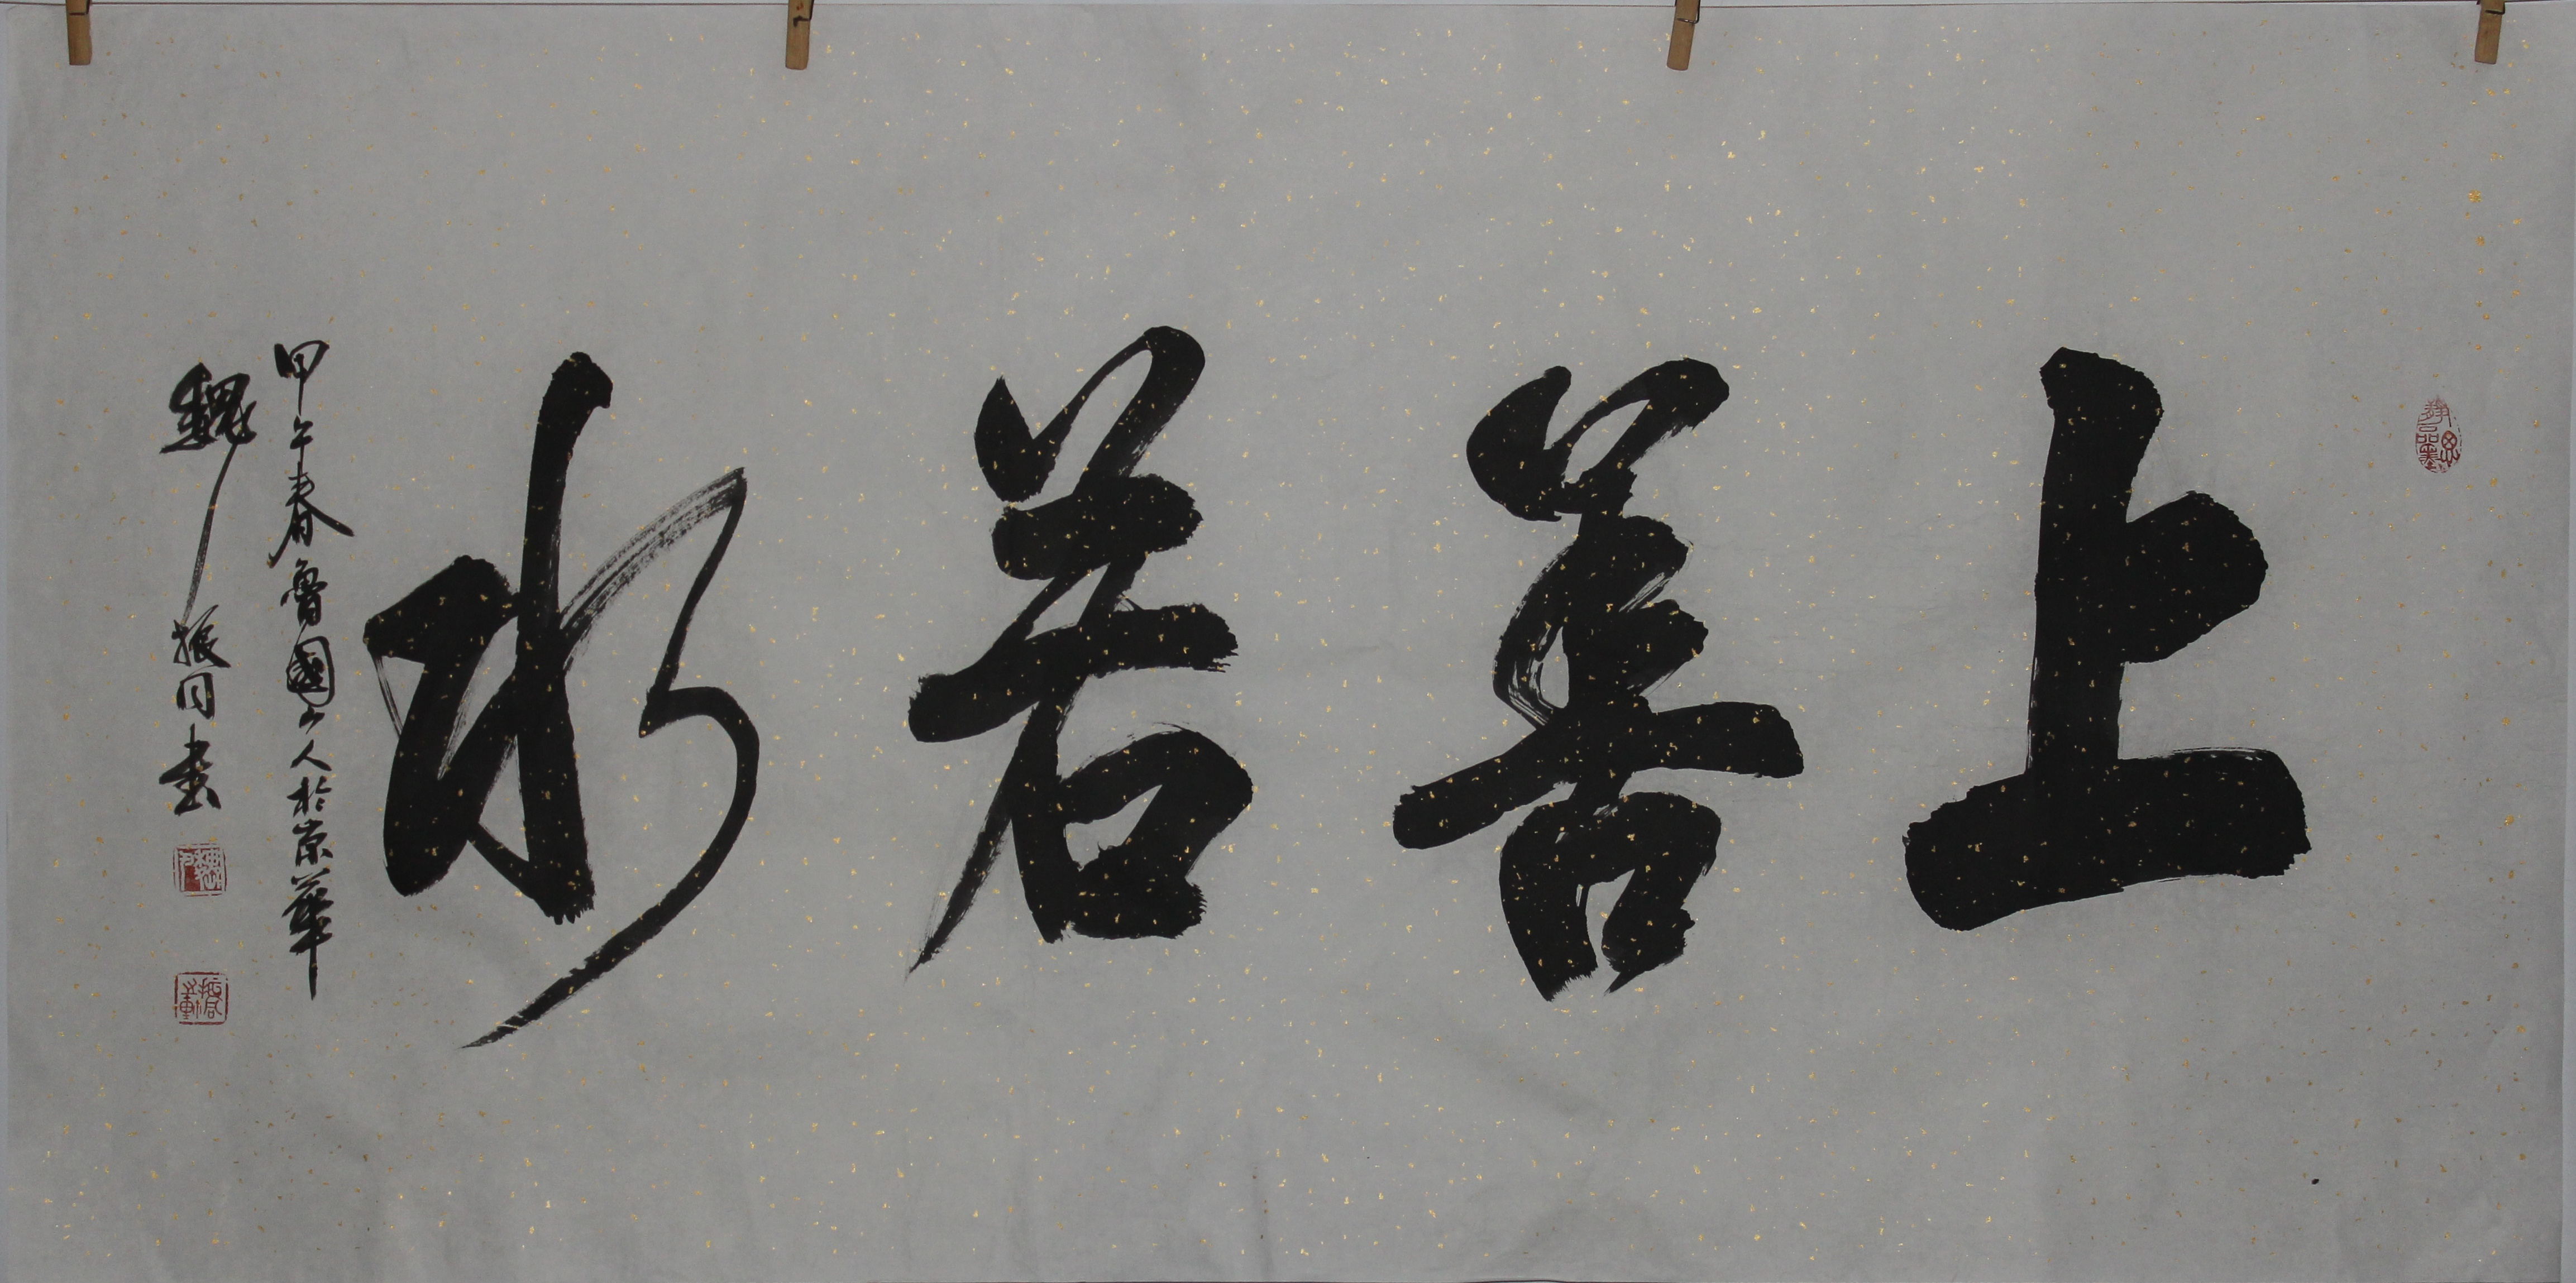 上善若水
甲午春魯國少人於京華
魏振同書